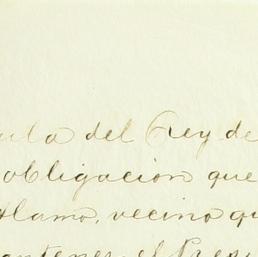 ula del Rey de
obligacion que
Alamo, vecino qu
antener el Presi